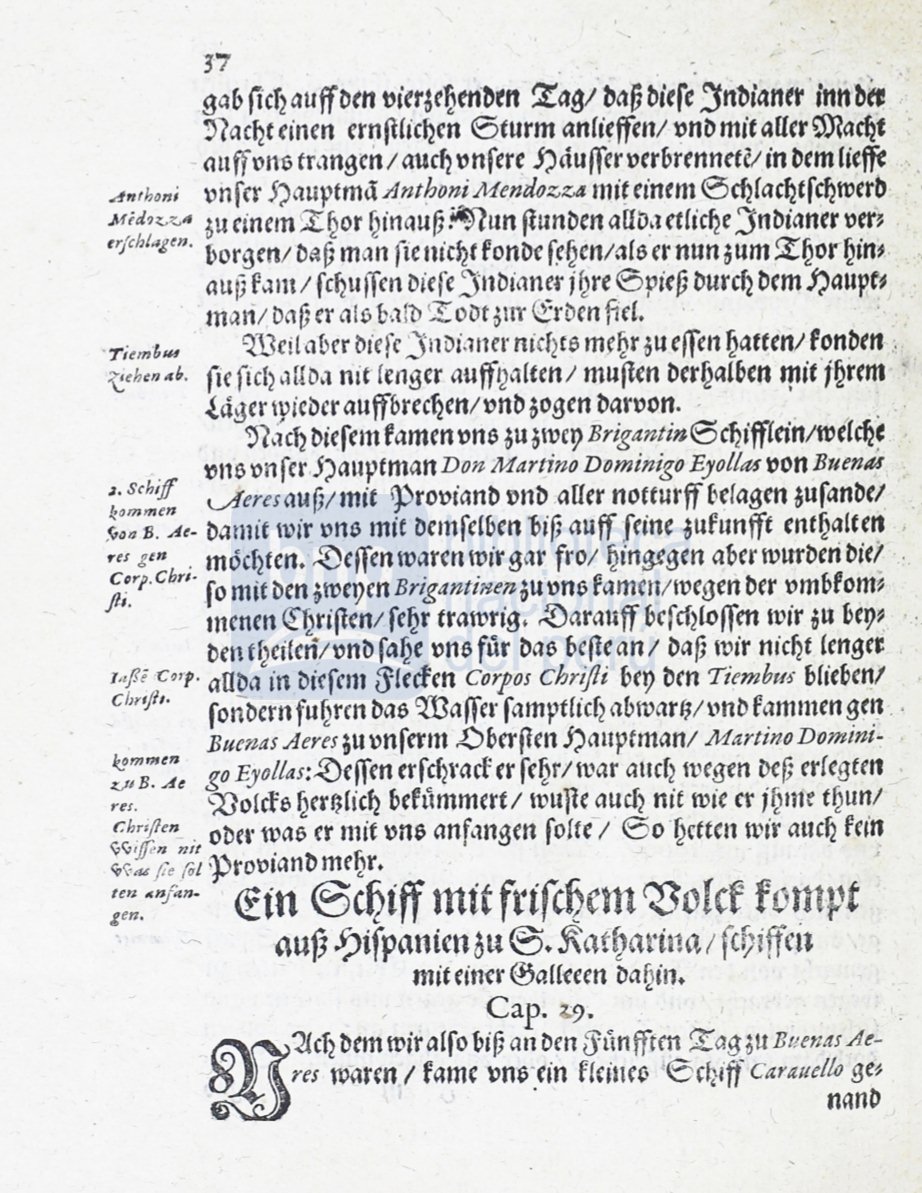 37
gab sich auff den vierzehenden Tag/ daß diese Indianer inn der
Nacht einen ernstlichen Sturm anlieffen/ vnd mit aller Macht
auff vns trangen/ auch vnsere Häusser verbrennetẽ/ in dem lieffe
Anthoni
Mẽdozza
erschlagen.
vnser Hauptmã Anthoni Mendozza mit einem Schlachtschwerd
zu einem Thor hinauß: Nun stunden allda etliche Indianer ver-
borgen/ daß man sie nicht konde sehen/ als er nun zum Thor hin-
auß kam/ schussen diese Indianer jhre Spieß durch dem Haupt-
man/ daß er als bald Todt zur Erden fiel.
Tiembus
ziehen ab.
Weil aber diese Indianer nichts mehr zu essen hatten/ konden
sie sich allda nit lenger auffhalten/ musten derhalben mit jhrem
Läger wieder auffbrechen/ vnd zogen darvon.
Nach diesem kamen vns zu zwey Brigantin Schifflein/ welche
vns vnser Hauptman Don Martino Dominigo Eyollas von Buenas
2. Schiff
kommen
von B. Ae-
res gen
Corp. Chri-
sti.
Aeres auß/ mit Proviand vnd aller notturff belagen zusande/
damit wir vns mit demselben biß auff seine zukunfft enthalten
möchten. Dessen waren wir gar fro/ hingegen aber wurden die/
so mit den zweyen Brigantinen zu vns kamen/ wegen der vmbkom-
menen Christen/ sehr trawrig. Darauff beschlossen wir zu bey-
den theilen/ vnd sahe vns für das beste an/ daß wir nicht lenger
laßẽ Corp.
Christi.
allda in diesem Flecken Corpos Christi bey den Tiembus blieben/
sondern fuhren das Wasser samptlich abwartz/ vnd kammen gen
Buenas Aeres zu vnserm Obersten Hauptman/ Martino Domini-
kommen
zu B. Ae
res.
Christen
wissen nit
was sie sol
ten anfan-
gen.
go Eyollas: Dessen erschrack er sehr/ war auch wegen deß erlegten
Volcks hertzlich bekümmert/ wuste auch nit wie er jhme thun/
oder was er mit vns anfangen solte/ So hetten wir auch kein
Proviand mehr.
Ein Schiff mit frischem Volck kompt
auß Hispanien zu S. Katharina/ schiffen
mit einer Galleeen dahin.
Cap. 29.
NAch dem wir also biß an den Fünfften Tag zu Buenas Ae-
res waren/ kame vns ein kleines Schiff Carauello ge-
nand
biblioteca
nacional
del perú